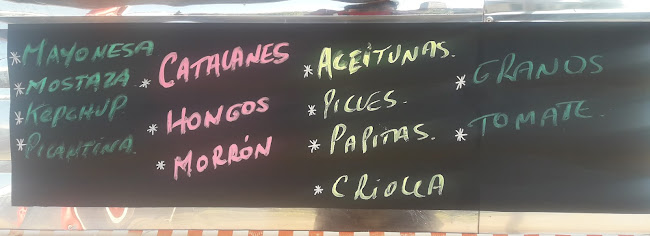 * MAYONESA
* MOSTAZA
* KEPCHUP
* PICANTINA
* CATALANES
* HONGOS
* MORRÓN
* ACEITUNAS.
* PICLES.
* PAPITAS.
* CRIOLLA
* GRANOS
* TOMATE.